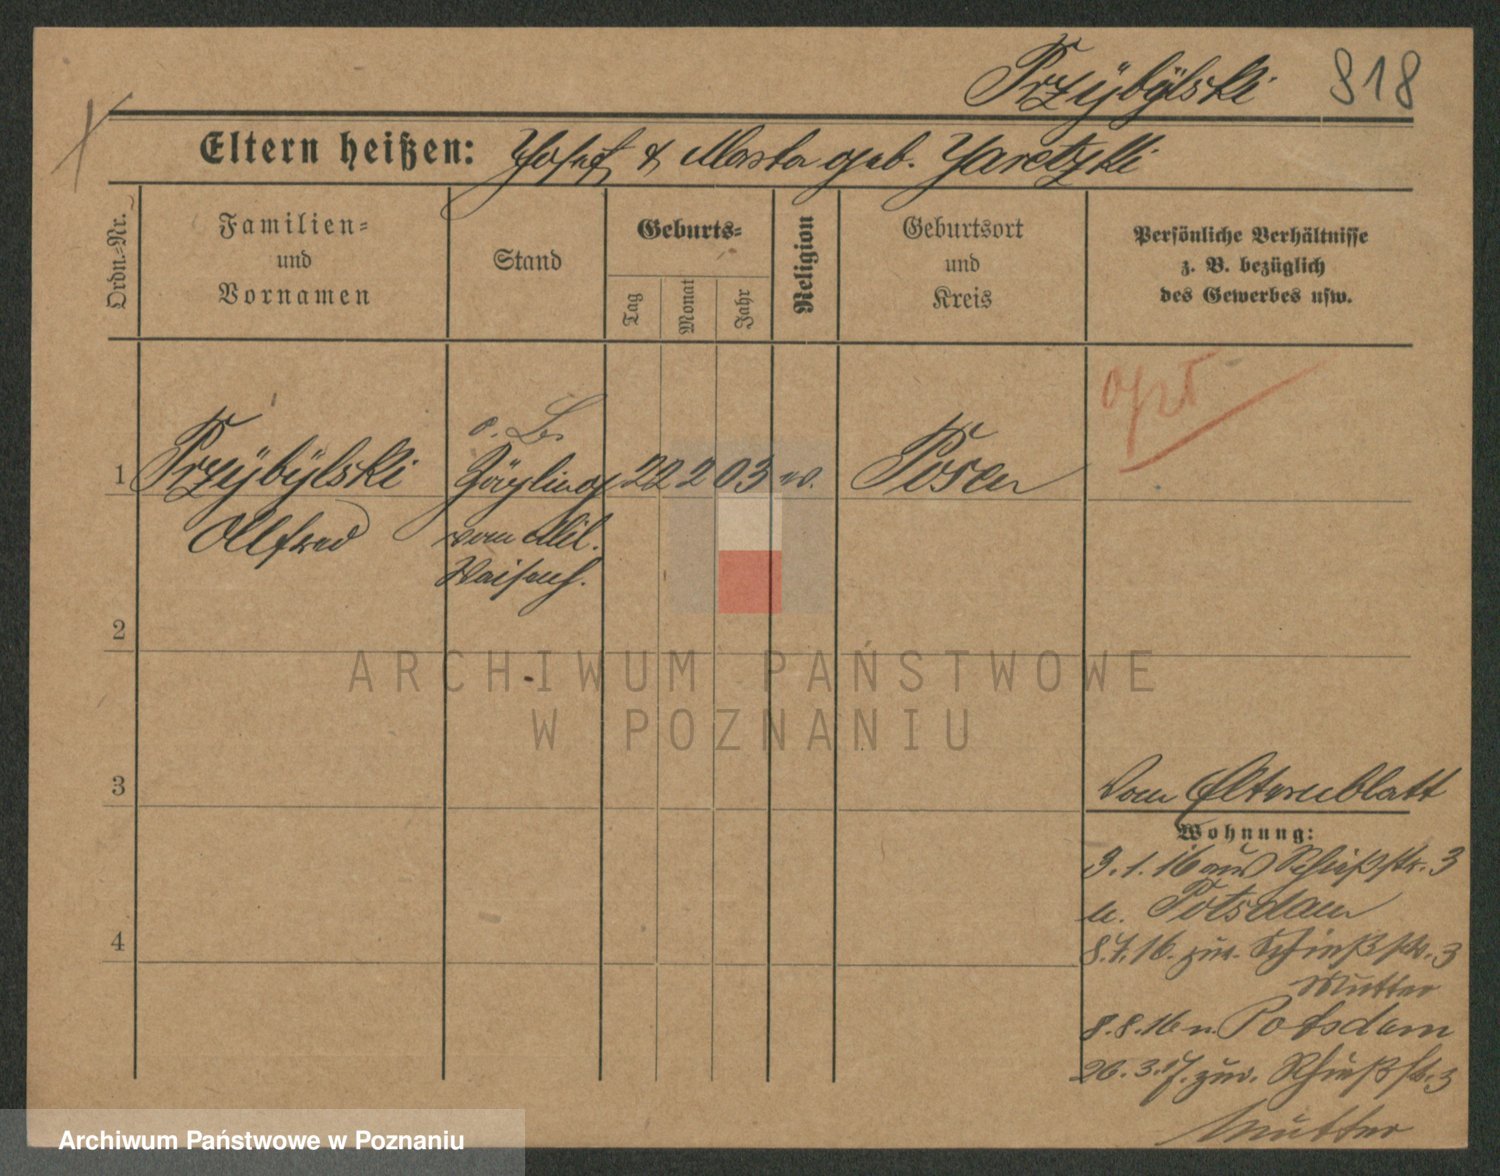 Przÿbÿlski 818
Eltern heißen: Josef & Marta geb. Jaretzki
Ordn.-Nr.
Familien-
und
Vornamen
Stand
Geburts-
Tag
Monat
Jahr
Religion
Geburtsort
und
Kreis
Persönliche Verhältnisse
z. B. bezüglich
des Gewerbes usw.
opt
1 Przÿbÿlski Zögling 22 2 03 Posen
Alfred vom Mil.
Waisenh.
2
3
4
ARCHIWUM PAŃSTWOWE
W POZNANIU
Vom Elternblatt
Wohnung:
3.1.16 aus Schießstr. 3
n. Potsdam
8.7.16. zur. Schießstr. 3
Mutter
8.8.16 n. Potsdam
26.3.17. zur. Schießstr. 3
Mutter
Archiwum Państwowe w Poznaniu